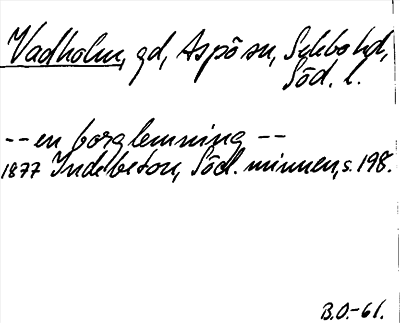 Vadholm, gd, Aspö sn, Selebo hd,
Söd. l.
-- en borglemning --
1877 Indebetou, Södl. minnen, s. 198.
B.O.-61.